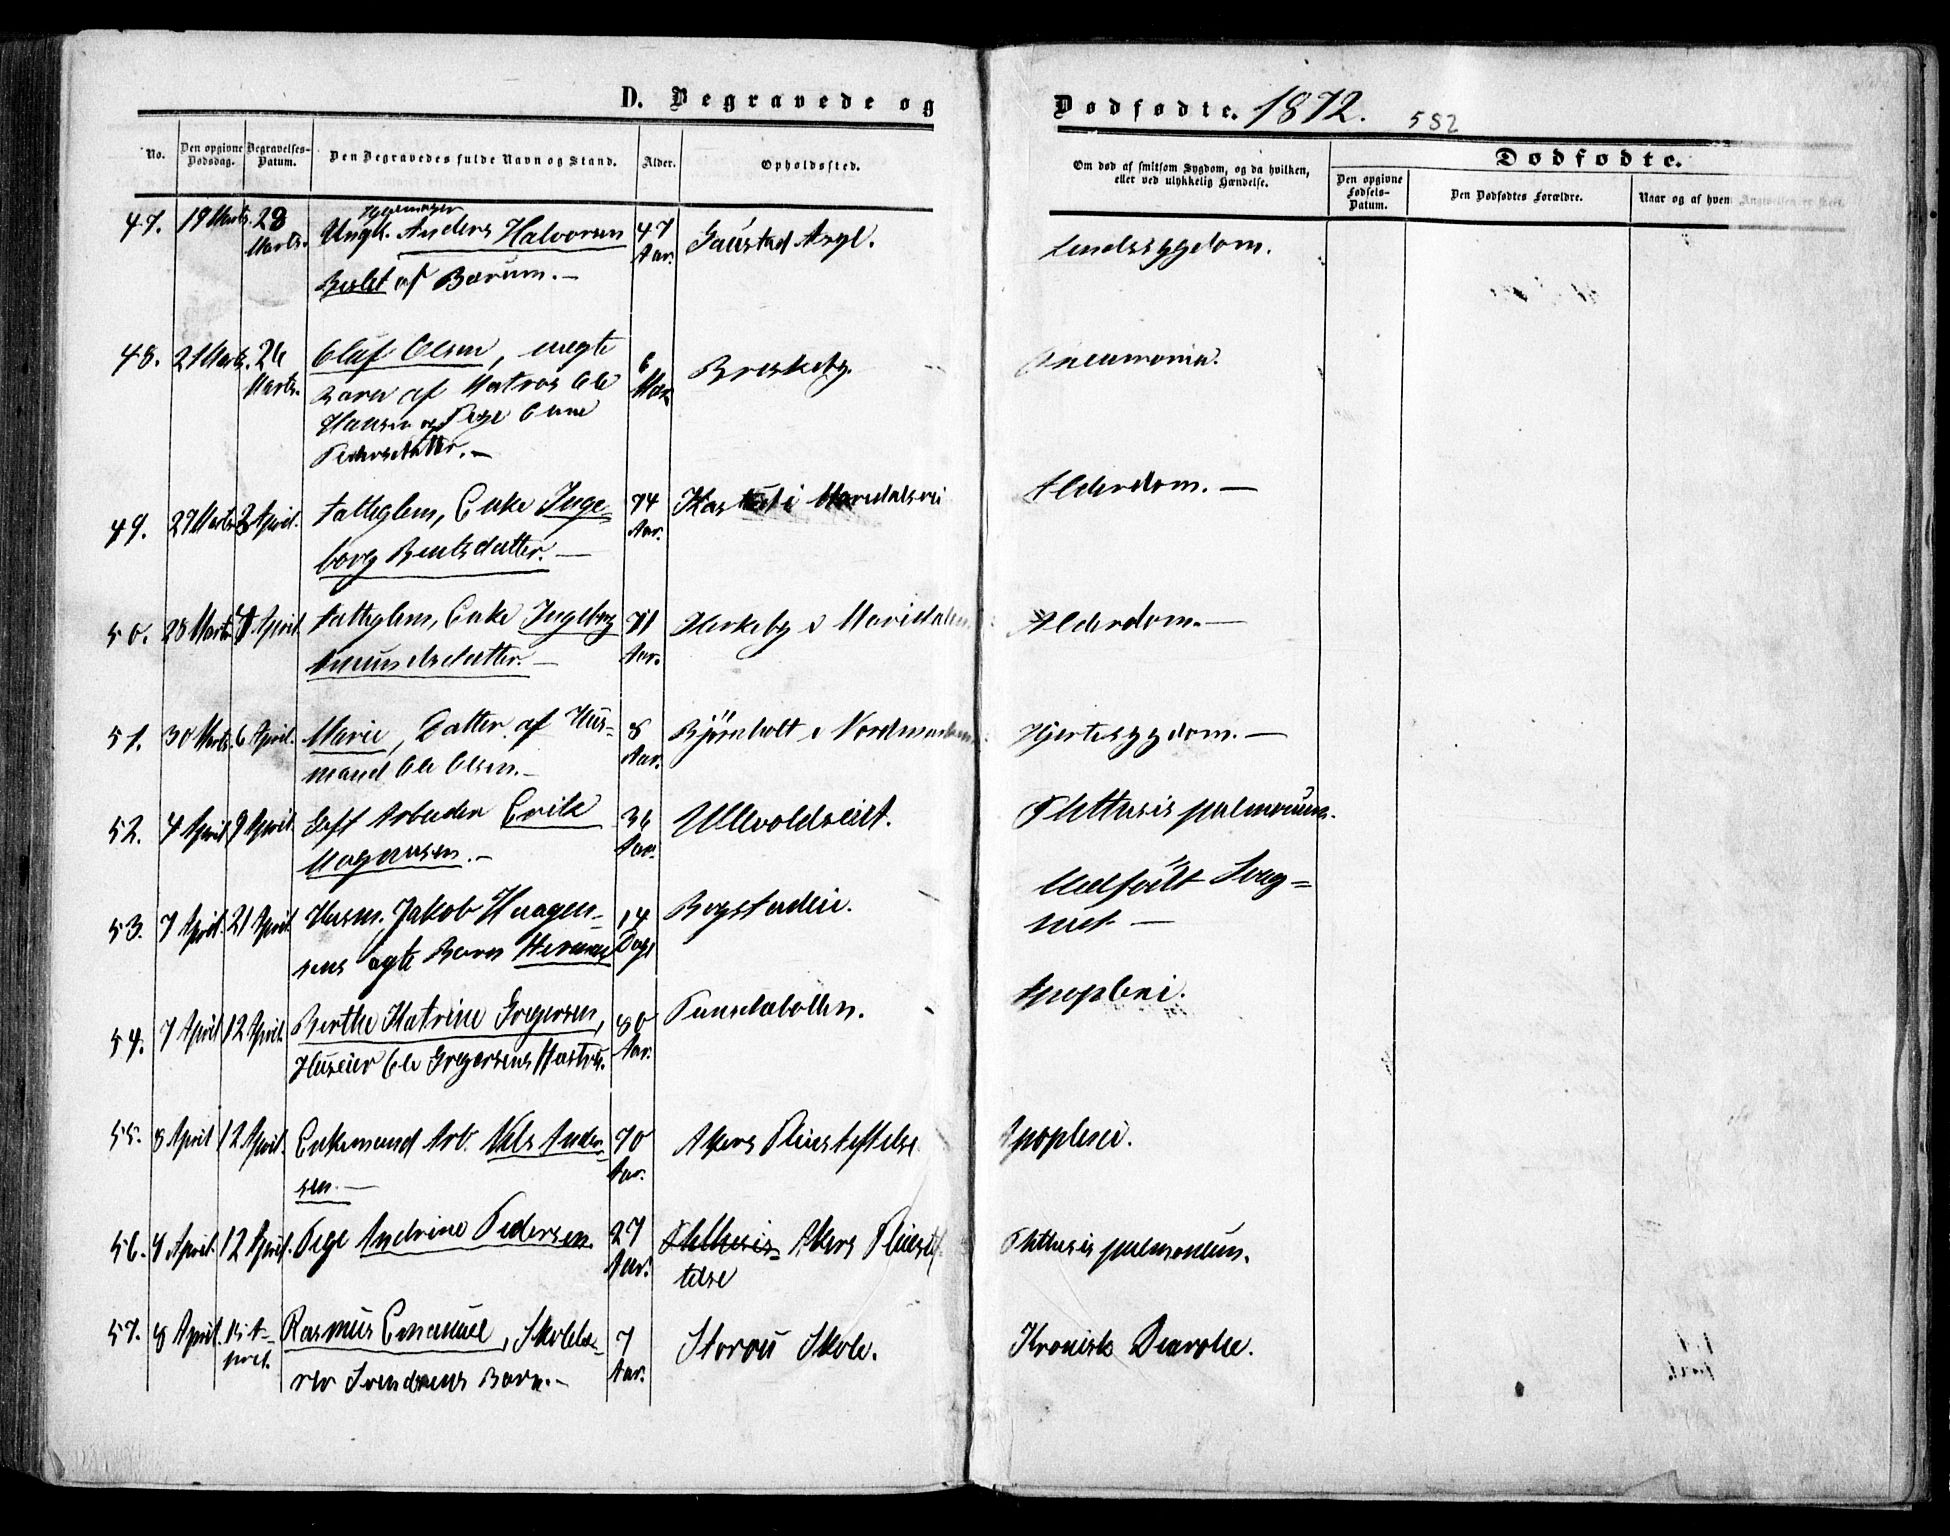 D. Begravede og
Dødfødte. 1872.
582
No.
Den opgivne Dødsdag.
Begravelses-Datum.
Den Begravedes fulde Navn og Stand.
Alder.
Opholdssted.
Om død af smitsom Sygdom, og da hvilken,
eller ved ulykkelig Hændelse.
Dødfødte.
Den opgivne Fødsels-Datum.
Den Dødfødtes Forældre.
Naar og af hvem Angivelsen er skeet.
47. 19 Marts. 28 Marts. Ungk. Anders Halvorsen 47 Aar. Gaustad Asyl.
af Bærum. —
48. 21 Marts. 26 Marts. Oluf Olsen, uægte 6 Briskeby. Pneumonia.
Barn af Matros Ole
Hansen og Pige Anne
Pedersdatter. —
49. 27 Marts 2 April. Fattiglem, Enke Inge- 74 Aar. i Maridalsvei Alderdom. —
borg Bentsdatter. —
50. 28 Marts 4 April. Fattiglem, Enke Ingeborg 71 Aar. Kirkeby i Maridalen Alderdom. —
Amundsdatter. —
51. 30 Marts. 6 April. Marie, Datter af Hus- 8 Aar. Bjørnholt i Nordmarken Hjertesygdom. —
mand Ole Olsen. —
52. 4 April 9 April. Gift Arbeider Erik 36 Aar. Ullevoldseiet. Phthisis pulmonum.
Magnusen. —
53. 7 April. 21 April. Husm. Jakob Haagen- 14 Dage Bogstadeie. Medfødt Svag-
sens ægte Barn Herman het —
54. 7 April 12 April. Berthe Katrine Gregersen, 80 Aar. Apoplexi.
Huseier Ole Gregersens Hustru.
55. 8 April 12 April. Enkemand Arb. Nils Ander- 70 Aar. Akers Pleiestiftelse Apoplexi.
sen. —
56. 4 April. 12 April. Pige Andrine Pedersen. 27 Aar. Phthisis Akers Pleiestif- Phthisis pulmonum.
telse
57. 8 April. 15 A- Rasmus Emanuel, Skolelæ- 7 Aar. Skole. Kronisk Diarrhe.
pril. rer Svendsens Barn. —